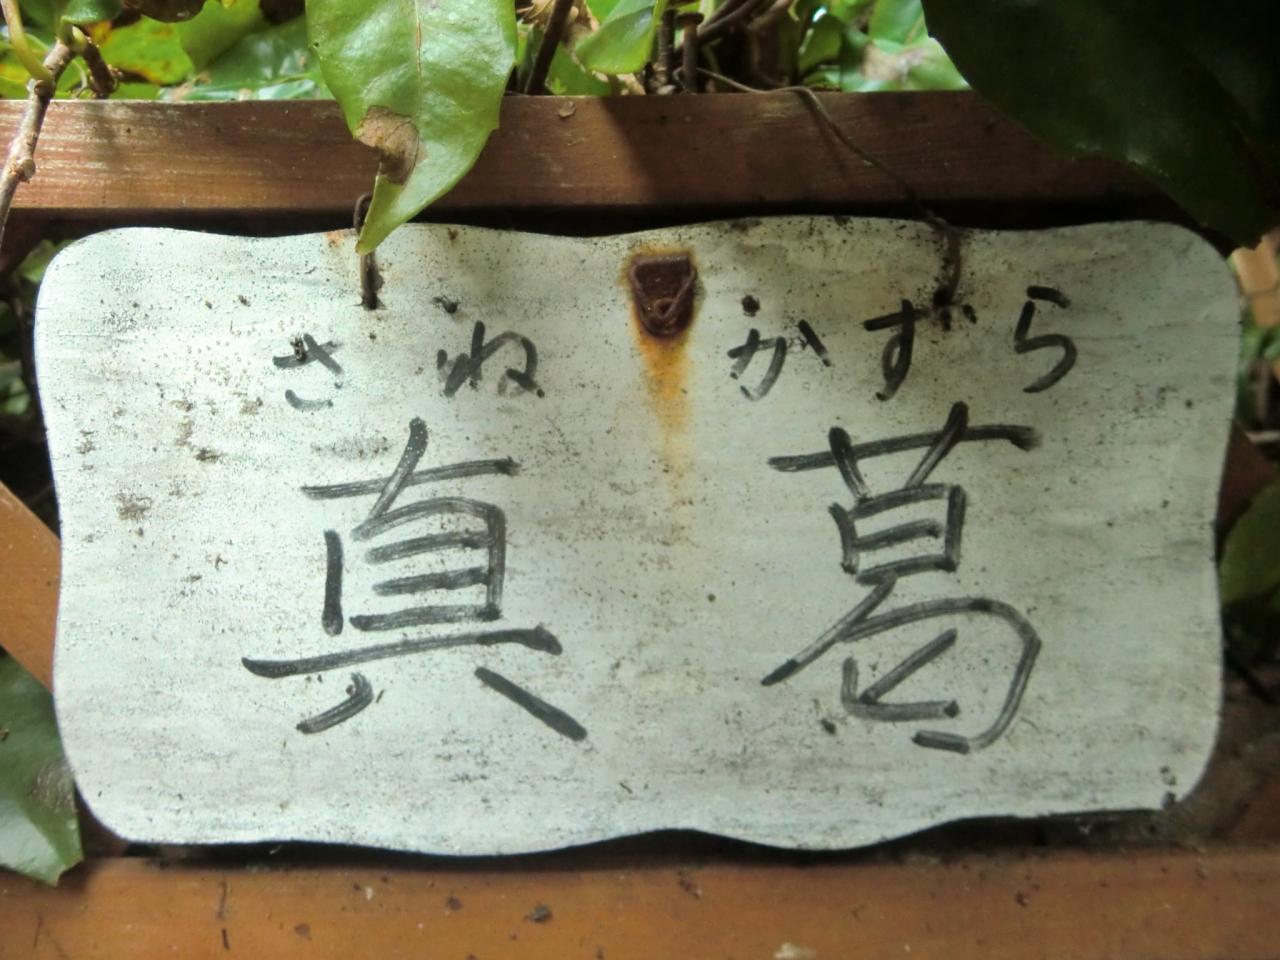 さねかずら
真葛